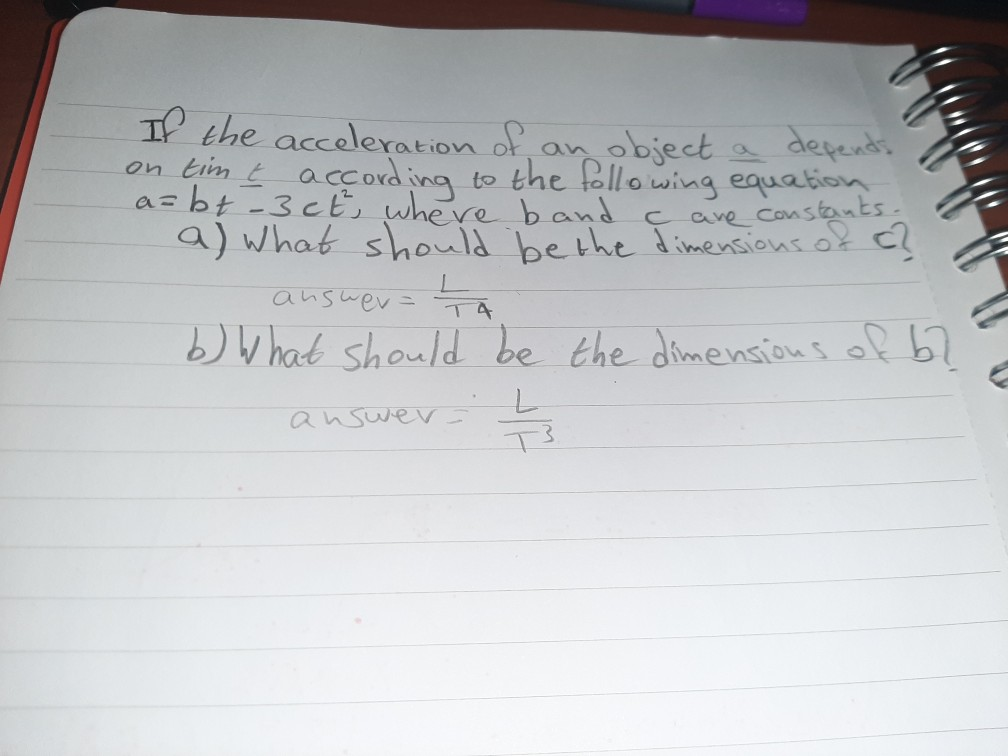 If the acceleration of an object a depends
on tim t according to the following equation
a = bt - 3ct², where b and c are constants.
a) What should be the dimensions of c?
answer = L/T⁴
b) What should be the dimensions of b?
answer = L/T³